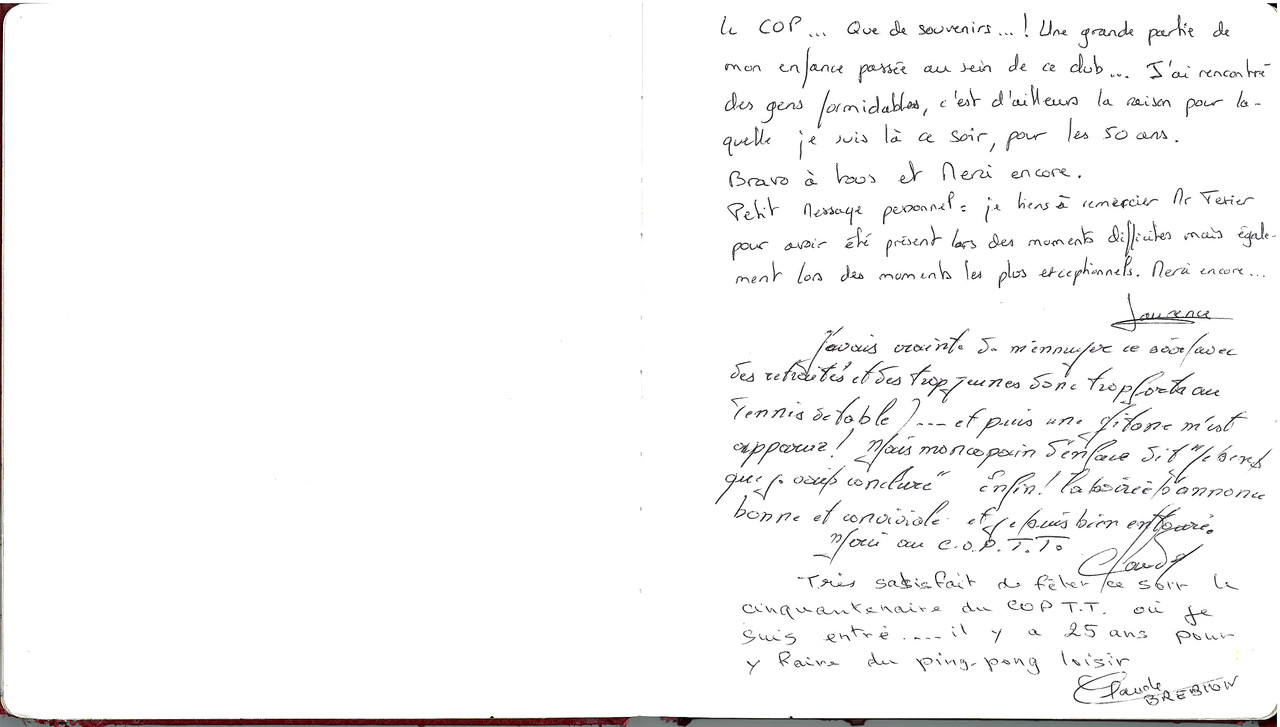 Le COP... Que de souvenirs...! Une grande partie de
mon enfance passée au sein de ce club... J'ai rencontré
des gens formidables, c'est d'ailleurs la raison pour la-
quelle je suis là ce soir, pour les 50 ans.
Bravo à tous et Merci encore.
Petit Message personnel: je tiens à remercier Mr Texier
pour avoir été présent lors des moments difficiles mais égale-
ment lors des moments les plus exceptionnels. Merci encore...
Laurence
J'avais crainte de m'ennuyer ce soir (avec
des retraités et des trop jeunes donc trop forts au
Tennis de table)... et puis une gitane m'est
apparue! Mais mon copain d'en face dit "
que je conclure" Enfin! la soirée s'annonce
bonne et conviviale et je suis bien entouré.
Merci au C.O.P.T.T.
Claude
Très satisfait de fêter ce soir le
cinquantenaire du COP T.T. où je
suis entré.... il y a 25 ans pour
y faire du ping-pong loisir
Claude
BREBION